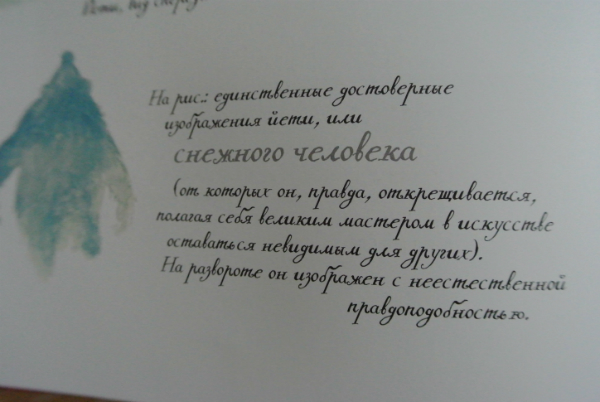 Йети, вид
На рис.: единственные достоверные
изображения йети, или
снежного человека
(от которых он, правда, открещивается,
полагая себя великим мастером в искусстве
оставаться невидимым для других).
На развороте он изображен с неестественной
правдоподобностью.